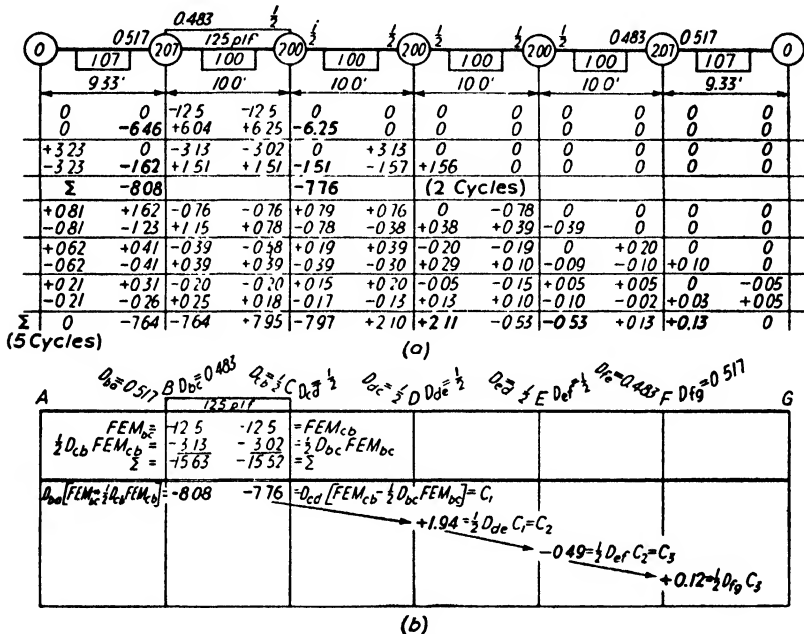 0.483 1/2
0 0.517 2.07 125 plf 2.00 1/2 1/2 2.00 1/2 1/2 2.00 1/2 0.483 2.07 0.517 0
1.07 1.00 1.00 1.00 1.00 1.07
9.33' 10.0' 10.0' 10.0' 10.0' 9.33'
0 0 -12.5 -12.5 0 0 0 0 0 0 0 0
0 -6.46 +6.04 +6.25 -6.25 0 0 0 0 0 0 0
+3.23 0 -3.13 -3.02 0 +3.13 0 0 0 0 0 0
-3.23 -1.62 +1.51 +1.51 -1.51 -1.57 +1.56 0 0 0 0 0
Σ -8.08 -7.76 (2 Cycles)
+0.81 +1.62 -0.76 -0.76 +0.79 +0.76 0 -0.78 0 0 0 0
-0.81 -1.23 +1.15 +0.78 -0.78 -0.38 +0.38 +0.39 -0.39 0 0 0
+0.62 +0.41 -0.39 -0.58 +0.19 +0.39 -0.20 -0.19 0 +0.20 0 0
-0.62 -0.41 +0.39 +0.39 -0.39 -0.30 +0.29 +0.10 -0.09 -0.10 +0.10 0
+0.21 +0.31 -0.20 -0.20 +0.15 +0.20 -0.05 -0.15 +0.05 +0.05 0 -0.05
-0.21 -0.26 +0.25 +0.18 -0.17 -0.13 +0.13 +0.10 -0.10 -0.02 +0.03 +0.05
Σ 0 -7.64 -7.64 +7.95 -7.97 +2.10 +2.11 -0.53 -0.53 +0.13 +0.13 0
(5 Cycles)
(a)
A Dba=0.517 B Dbc=0.483 Dcb=1/2 C Dcd=1/2 Ddc=1/2 D Dde=1/2 Ded=1/2 E Def=1/2 Dfe=0.483 F Dfg=0.517 G
125 plf
FEMbc= -12.5 -12.5 =FEMcb
1/2 Dcb FEMcb= -3.13 -3.02 =1/2 Dbc FEMbc
Σ = -15.63 -15.52 =Σ
Dba[FEMbc-1/2 Dcb FEMcb]= -8.08 -7.76 =Dcd[FEMcb-1/2 Dbc FEMbc]=C1
+1.94=1/2 Dde C1=C2
-0.49=1/2 Def C2=C3
+0.12=1/2 Dfg C3
(b)